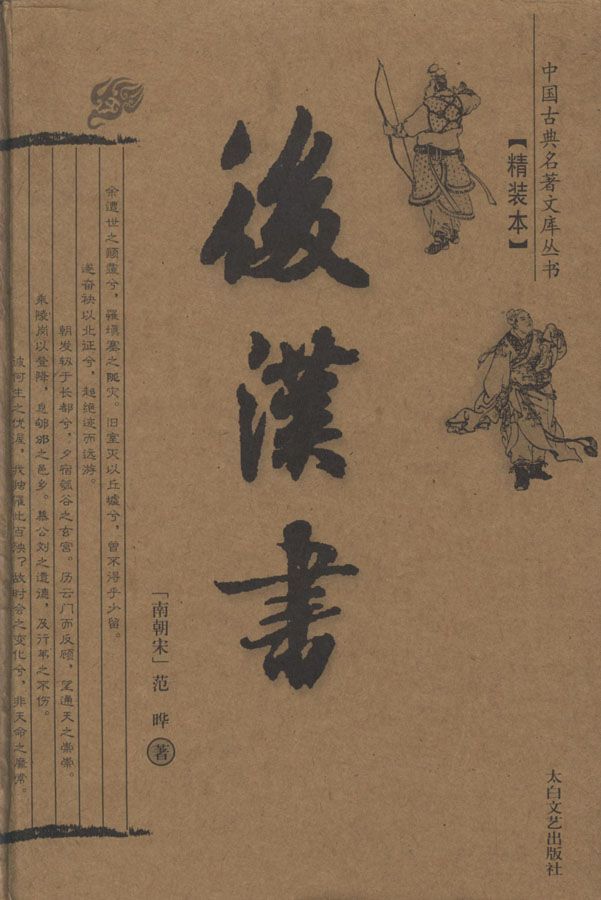 中国古典名著文库丛书
【精装本】
後漢書
「南朝宋」范晔 著
太白文艺出版社
余遭世之颠覆兮，罹填塞之阨灾。旧室灭以丘墟兮，曾不得乎少留。
遂奋袂以北证兮，超绝迹而远游。
朝发轫于长都兮，夕宿瓠谷之玄宫。历云门而反顾，望通天之崇崇。
乘陵岗以登降，息郇邠之邑乡。慕公刘之遗德，及行苇之不伤。
彼何生之优渥，我独罹此百殃？故时会之变化兮，非天命之靡常。